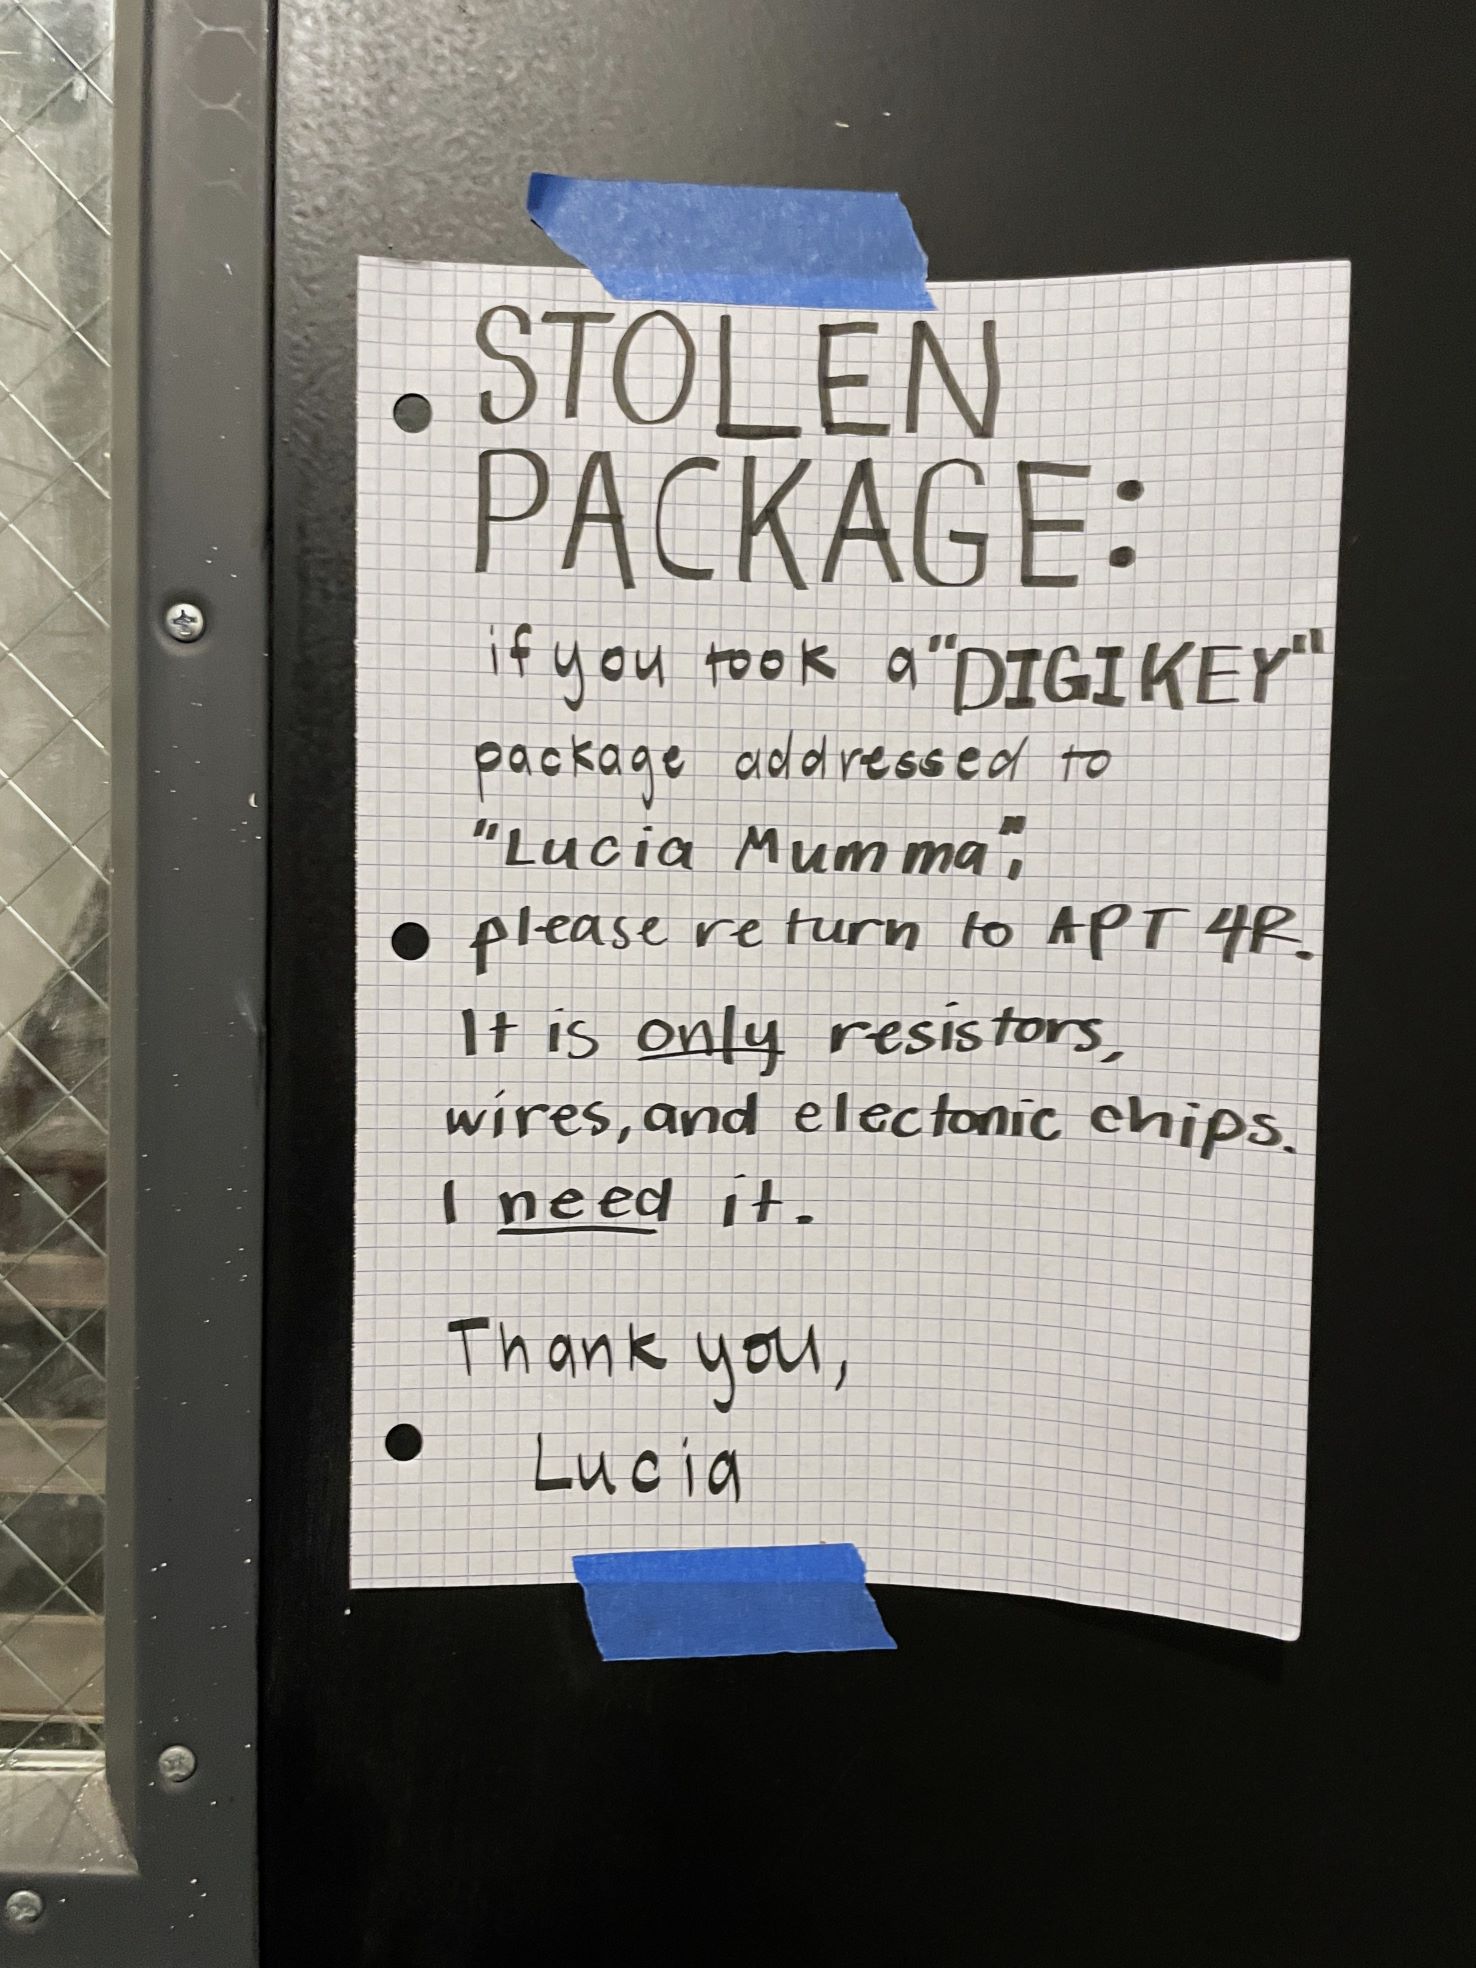 STOLEN
PACKAGE:
if you took a "DIGIKEY"
package addressed to
"Lucia Mumma",
please return to APT 4R.
It is only resistors,
wires, and electonic chips.
I need it.
Thank you,
Lucia